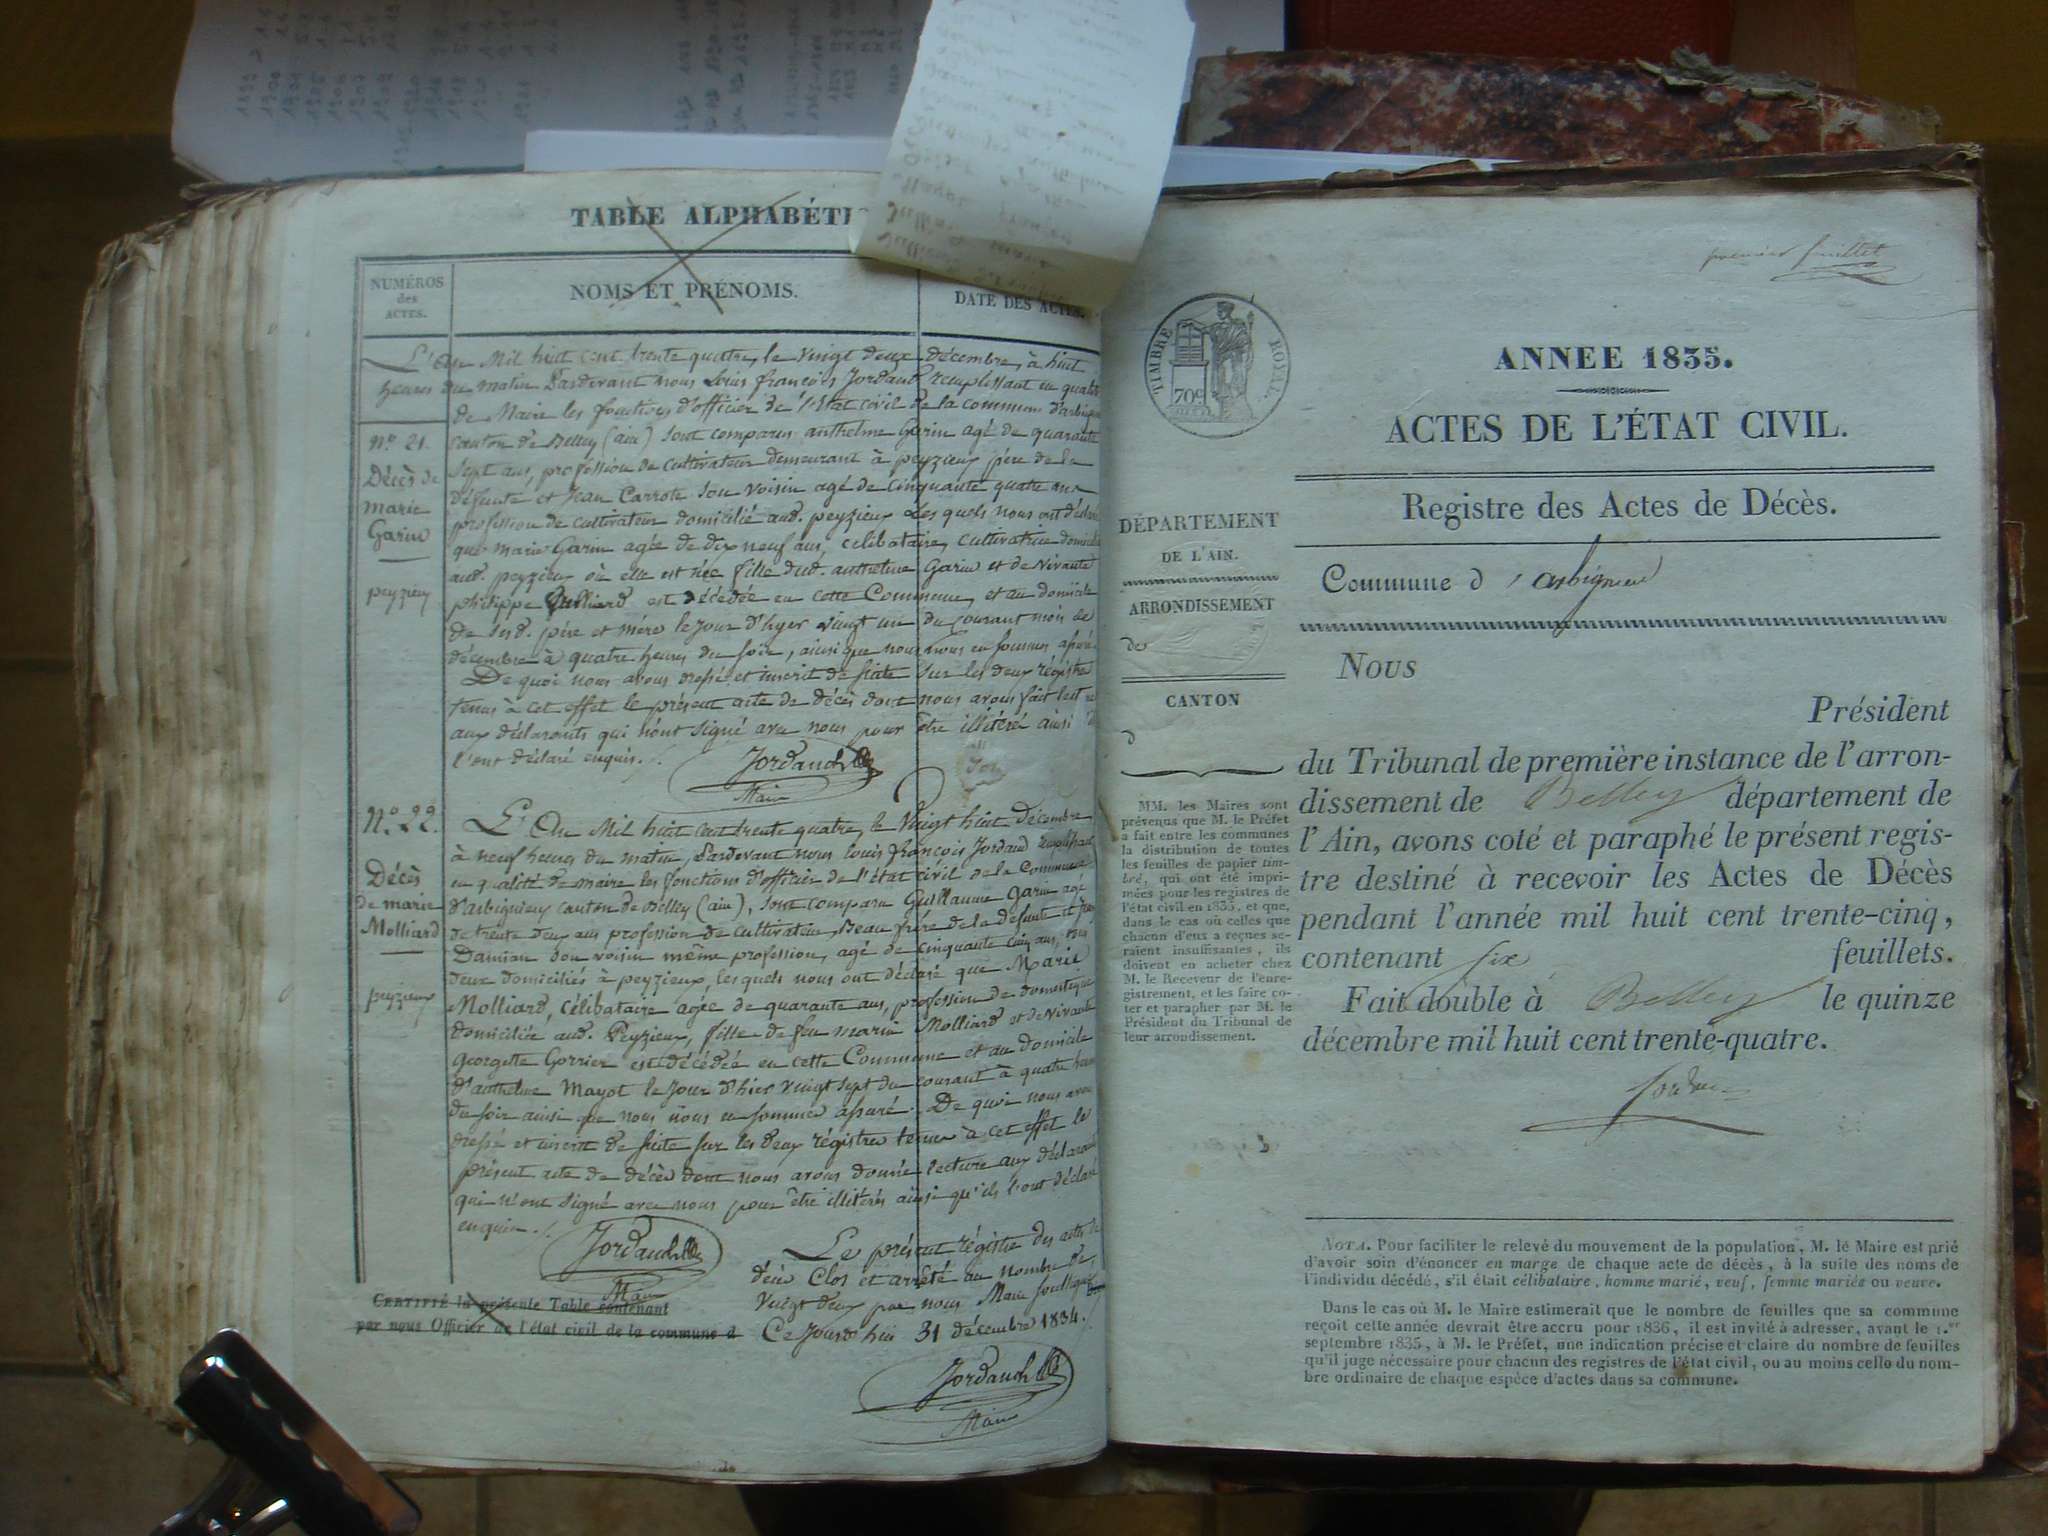 TABLE ALPHABÉTI
NUMÉROS
des
ACTES.
NOMS ET PRÉNOMS.
DATE DES ACTES.
L'an Mil huit cent trente quatre, le vingt deux décembre, à huit
heures du matin Pardevant nous Louis françois Jordand remplissant en qualité
de Maire les fonctions d'officier de l'état civil de la commune d'arbignieu
N.o 21.
Décès de
marie
Garin
peyzieu
canton de Belley (ain) sont comparus anthelme Garin agé de quarante
sept ans, profession de cultivateur demeurant à peyzieux père de la
défunte et Jean Carrote son voisin agé de cinquante quatre ans
profession de cultivateur domicilié aud. peyzieux Les quels nous ont déclaré
que marie Garin agée de dix neuf ans, célibataire, cultivatrice
aud. peyzieux où elle est née fille dud. anthelme Garin et de vivante
philippe est décédée en cette Commune, et au domicile
de sesd. père et mère le jour d'hyer vingt un du courant mois de
décembre à quatre heures du soir, ainsi que nous nous en sommes assuré.
De quoi nous avons dressé et inscrit de suite sur les deux régistres
tenus à cet effet le présent acte de décès dont nous avons fait lecture
aux déclarants qui n'ont signé avec nous pour être illitéré ainsi
l'ont déclaré enquis.
Jordand
Maire
N.o 22.
Décès
de marie
Molliard
peyzieux
L'An Mil huit cent trente quatre, le Vingt huit décembre
à neuf heures du matin, Pardevant nous louis françois Jordand remplissant
en qualité de maire les fonctions d'officier de l'état civil de la Commune
d'arbignieux canton de Belley (ain), sont comparu Guillaume Garin agé
de trente deux ans profession de cultivateur, Beau frère de la défunte et
Damian son voisin même profession, agé de cinquante cinq ans, tous
deux domiciliés à peyzieux, les quels nous ont déclaré que Marie
Molliard, célibataire agée de quarante ans, profession de domestique
domiciliée aud. Peyzieux, fille de feu marin Molliard et de vivante
georgette Gorrier est décédée en cette Commune et au domicile
d'anthelme Mayot le jour d'hier vingt sept du courant à quatre heures
du soir ainsi que nous nous en sommes assuré. De quoi nous avons
dressé et inscrit de suite sur les deux régistres tenus à cet effet le
présent acte de décès dont nous avons donné lecture aux déclarants
qui n'ont signé avec nous pour être illitérés ainsi qu'ils l'ont déclaré
enquis.
Jordand
Maire
Le présent régistre des actes de
décès Clos et arrêté au nombre de
vingt deux par nous Maire soussigné
Ce Jourd'hui 31 décembre 1834.
Jordand
Maire
CERTIFIÉ la présente Table contenant
par nous Officier de l'état civil de la commune d
premier feuillet
TIMBRE ROYAL
70c
ANNEE 1835.
ACTES DE L'ÉTAT CIVIL.
Registre des Actes de Décès.
Commune d'arbignieu
DÉPARTEMENT
DE L'AIN.
ARRONDISSEMENT
de
CANTON
d
MM. les Maires sont
prévenus que M. le Préfet
a fait entre les communes
la distribution de toutes
les feuilles de papier tim-
bré, qui ont été impri-
mées pour les registres de
l'état civil en 1835, et que,
dans le cas où celles que
chacun d'eux a reçues se-
raient insuffisantes, ils
doivent en acheter chez
M. le Receveur de l'enre-
gistrement, et les faire co-
ter et parapher par M. le
Président du Tribunal de
leur arrondissement.
Nous
Président
du Tribunal de première instance de l'arron-
dissement de Belley département de
l'Ain, avons coté et paraphé le présent regis-
tre destiné à recevoir les Actes de Décès
pendant l'année mil huit cent trente-cinq,
contenant six feuillets.
Fait double à Belley le quinze
décembre mil huit cent trente-quatre.
NOTA. Pour faciliter le relevé du mouvement de la population, M. le Maire est prié
d'avoir soin d'énoncer en marge de chaque acte de décès, à la suite des noms de
l'individu décédé, s'il était célibataire, homme marié, veuf, femme mariée ou veuve.
Dans le cas où M. le Maire estimerait que le nombre de feuilles que sa commune
reçoit cette année devrait être accru pour 1836, il est invité à adresser, avant le 1.er
septembre 1835, à M. le Préfet, une indication précise et claire du nombre de feuilles
qu'il juge nécessaire pour chacun des registres de l'état civil, ou au moins celle du nom-
bre ordinaire de chaque espèce d'actes dans sa commune.